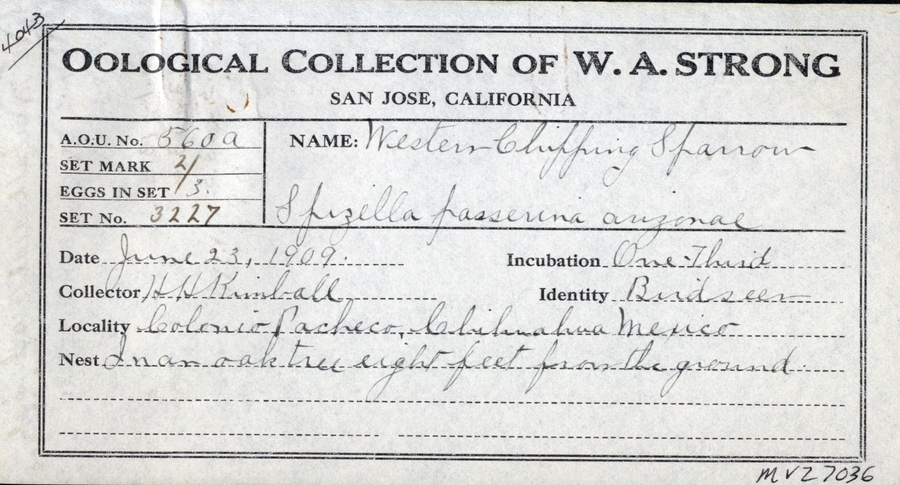 4043
OOLOGICAL COLLECTION OF W. A. STRONG
SAN JOSE, CALIFORNIA
A.O.U. No. 560a
SET MARK 2/
EGGS IN SET 3.
SET No. 3227
NAME: Western Chipping Sparrow
Spizella passerina arizonae
Date June 23, 1909. Incubation One-Third
Collector H H Kimball Identity Bird seen
Locality Colonio Pacheco, Chihuahua Mexico
Nest In an oak tree eight feet from the ground.
MVZ 7036